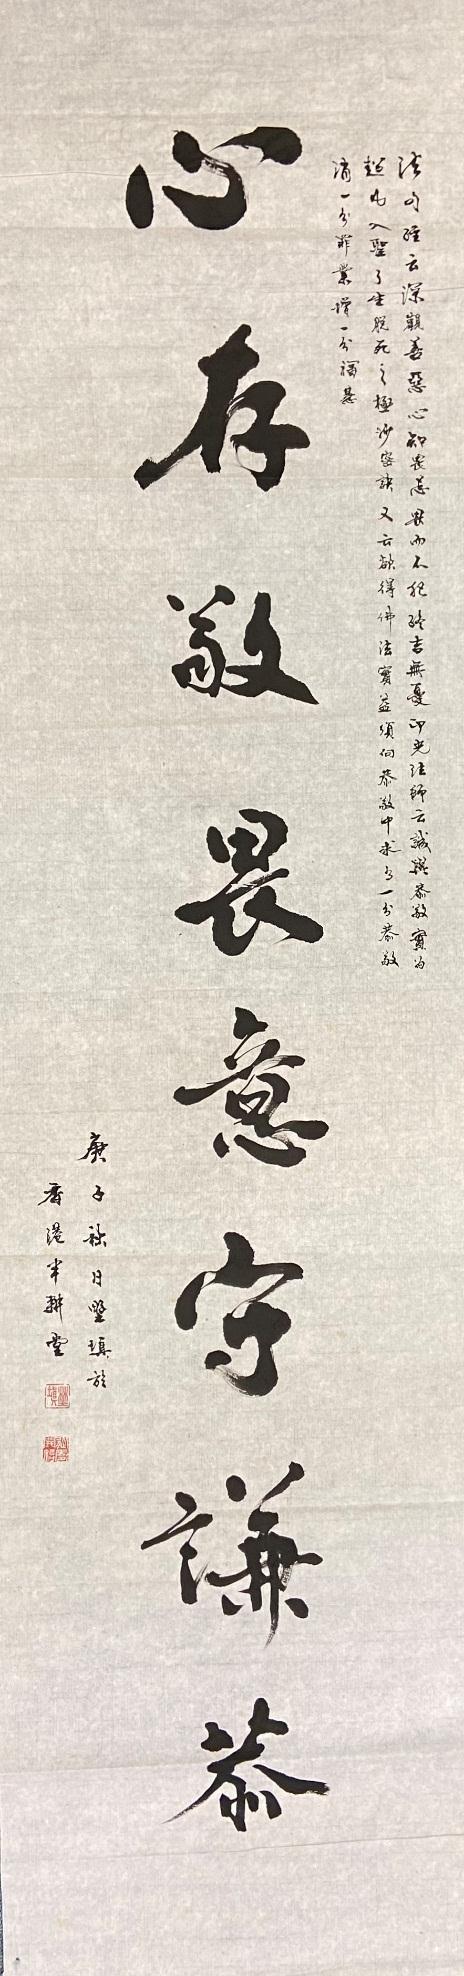 法句經云深觀善惡心知畏忌畏而不犯終吉無憂印光法師云誠與恭敬實為
超凡入聖了生脫死之極妙秘訣又云欲得佛法實益須向恭敬中求有一分恭敬
消一分罪業增一分福慧
心存敬畏意守謙恭
庚子秋日堅填於
香港半耕堂